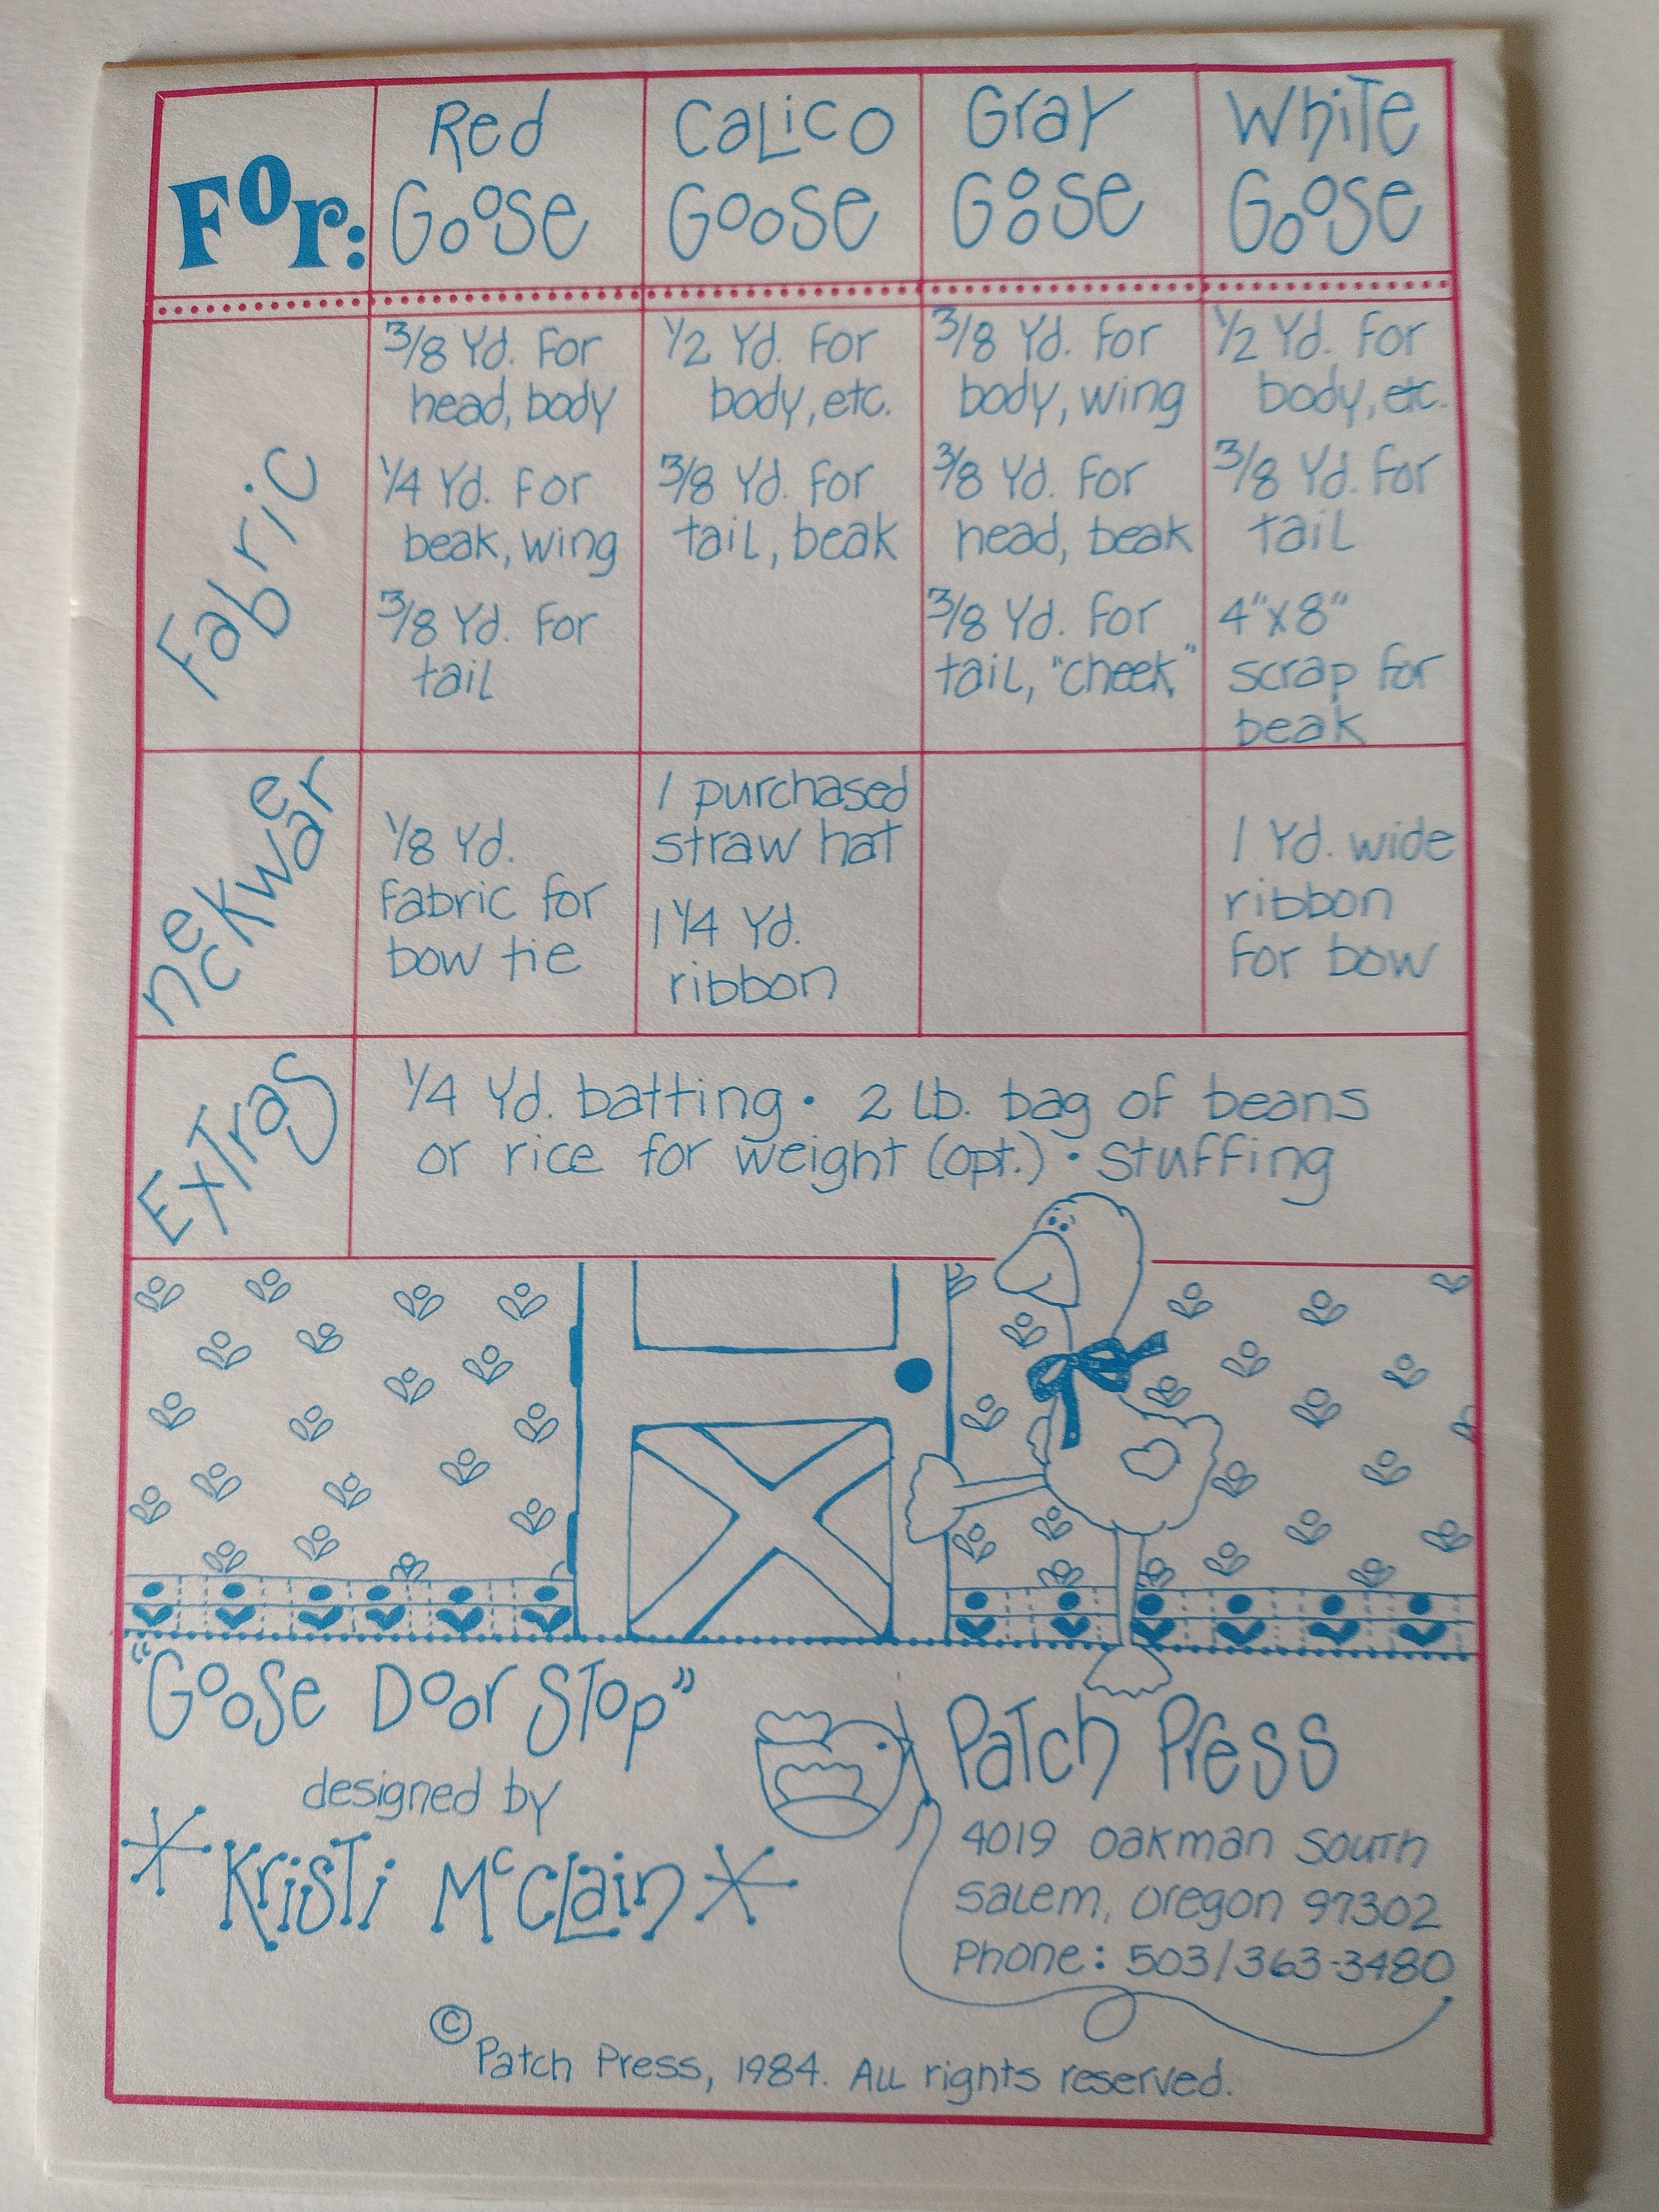 For:
Red Goose
Calico Goose
Gray Goose
White Goose
Fabric
3/8 Yd. for
head, body
1/4 Yd. for
beak, wing
3/8 Yd. for
tail
1/2 Yd. for
body, etc.
3/8 Yd. for
tail, beak
3/8 Yd. for
body, wing
3/8 Yd. for
head, beak
3/8 Yd. for
tail, "cheek"
1/2 Yd. for
body, etc.
3/8 Yd. for
tail
4"x8"
scrap for
beak
neckwear
1/8 Yd.
fabric for
bow tie
1 purchased
straw hat
1 1/4 Yd.
ribbon
1 Yd. wide
ribbon
for bow
Extras
1/4 Yd. batting • 2 lb. bag of beans
or rice for weight (opt.) • stuffing
"Goose Door Stop"
designed by
Kristi McClain
Patch Press
4019 Oakman South
Salem, Oregon 97302
Phone: 503/363-3480
© Patch Press, 1984. All rights reserved.